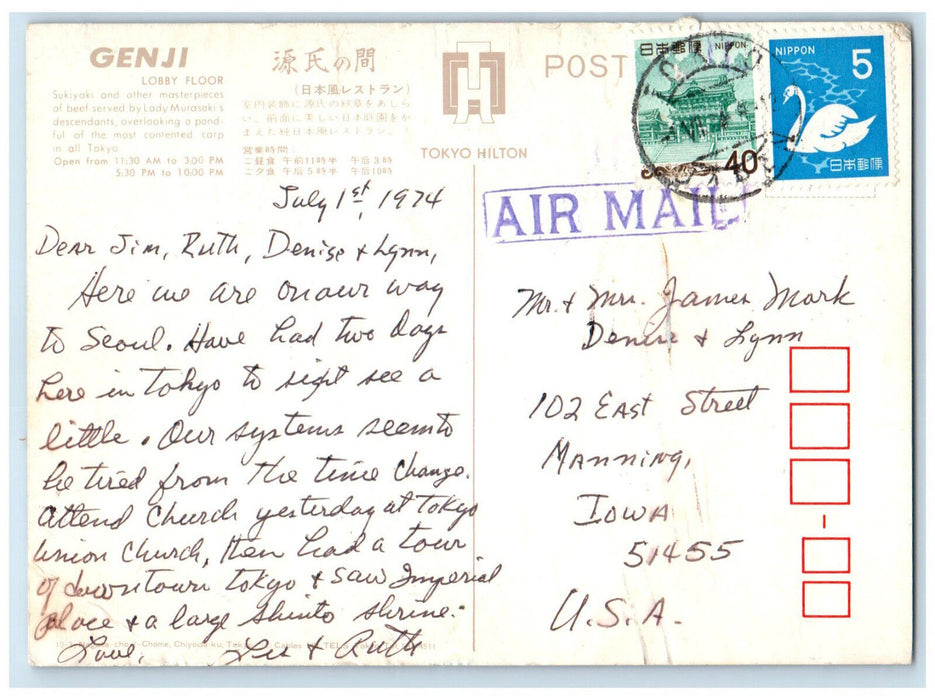 GENJI
LOBBY FLOOR
Sukiyaki and other masterpieces
of beef served by Lady Murasaki's
descendants, overlooking a pond-
ful of the most contented carp
in all Tokyo.
Open from 11:30 AM to 3:00 PM
5:30 PM to 10:00 PM
源氏の間
(日本風レストラン)
室内装飾に源氏の紋章をあしら
い、前面に美しい日本庭園をか
まえた純日本風レストラン。
営業時間:
ご昼食 午前11時半 午后3時
ご夕食 午后5時半 午后10時
TOKYO HILTON
POST
日本郵便 NIPPON
40
NIPPON 5
日本郵便
AIR MAIL
July 1st, 1974
Dear Jim, Ruth, Denise + Lynn,
Here we are on our way
to Seoul. Have had two days
here in Tokyo to sight see a
little. Our systems seem to
be tired from the time change.
Attend Church yesterday at Tokyo
Union Church, then had a tour
of downtown Tokyo + saw Imperial
place + a large Shinto shrine.
Love,
+ Ruth
Mr. + Mrs. James Mark
Denise + Lynn
102 East Street
Manning,
Iowa
51455
U.S.A.